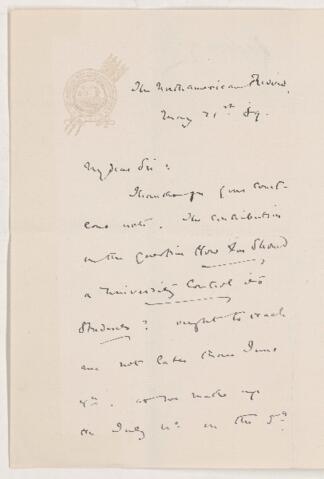 The North American Review,
May 21st 89.
My Dear Sir:
Thanks for your court-
eous note. The contribution
on the question How Far Should
a University Control its
Students? ought to reach
me not later than June
as we make up
the July No. on the 5th